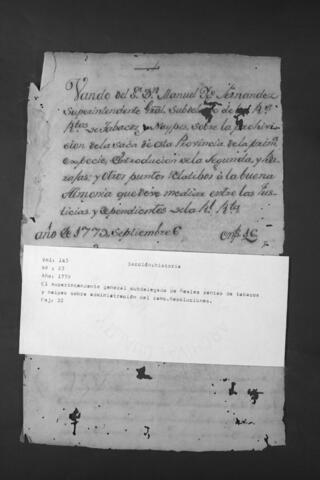 Vando del S.r D.n Manuel Fernandez
Superintendente Gral. Subdelegado de las R.s
Rtas de Tabacos, y Naypes, sobre la prohivi-
cion de la saca de esta Provincia de la prim.
expecie, Introducion de la Segunda, y
y Otros puntos relatibos à la buena
Armonia que deve mediar entre las Jus-
ticias y dependientes de la R.l Rta
año de 1779 Septiembre 6
Sección:historia
Vol: 143
Nº : 23
Año: 1779
El superintendente general subdelegado de Reales rentas de tabacos
y naipes sobre administración del ramo.Resoluciones.
Faj: 32